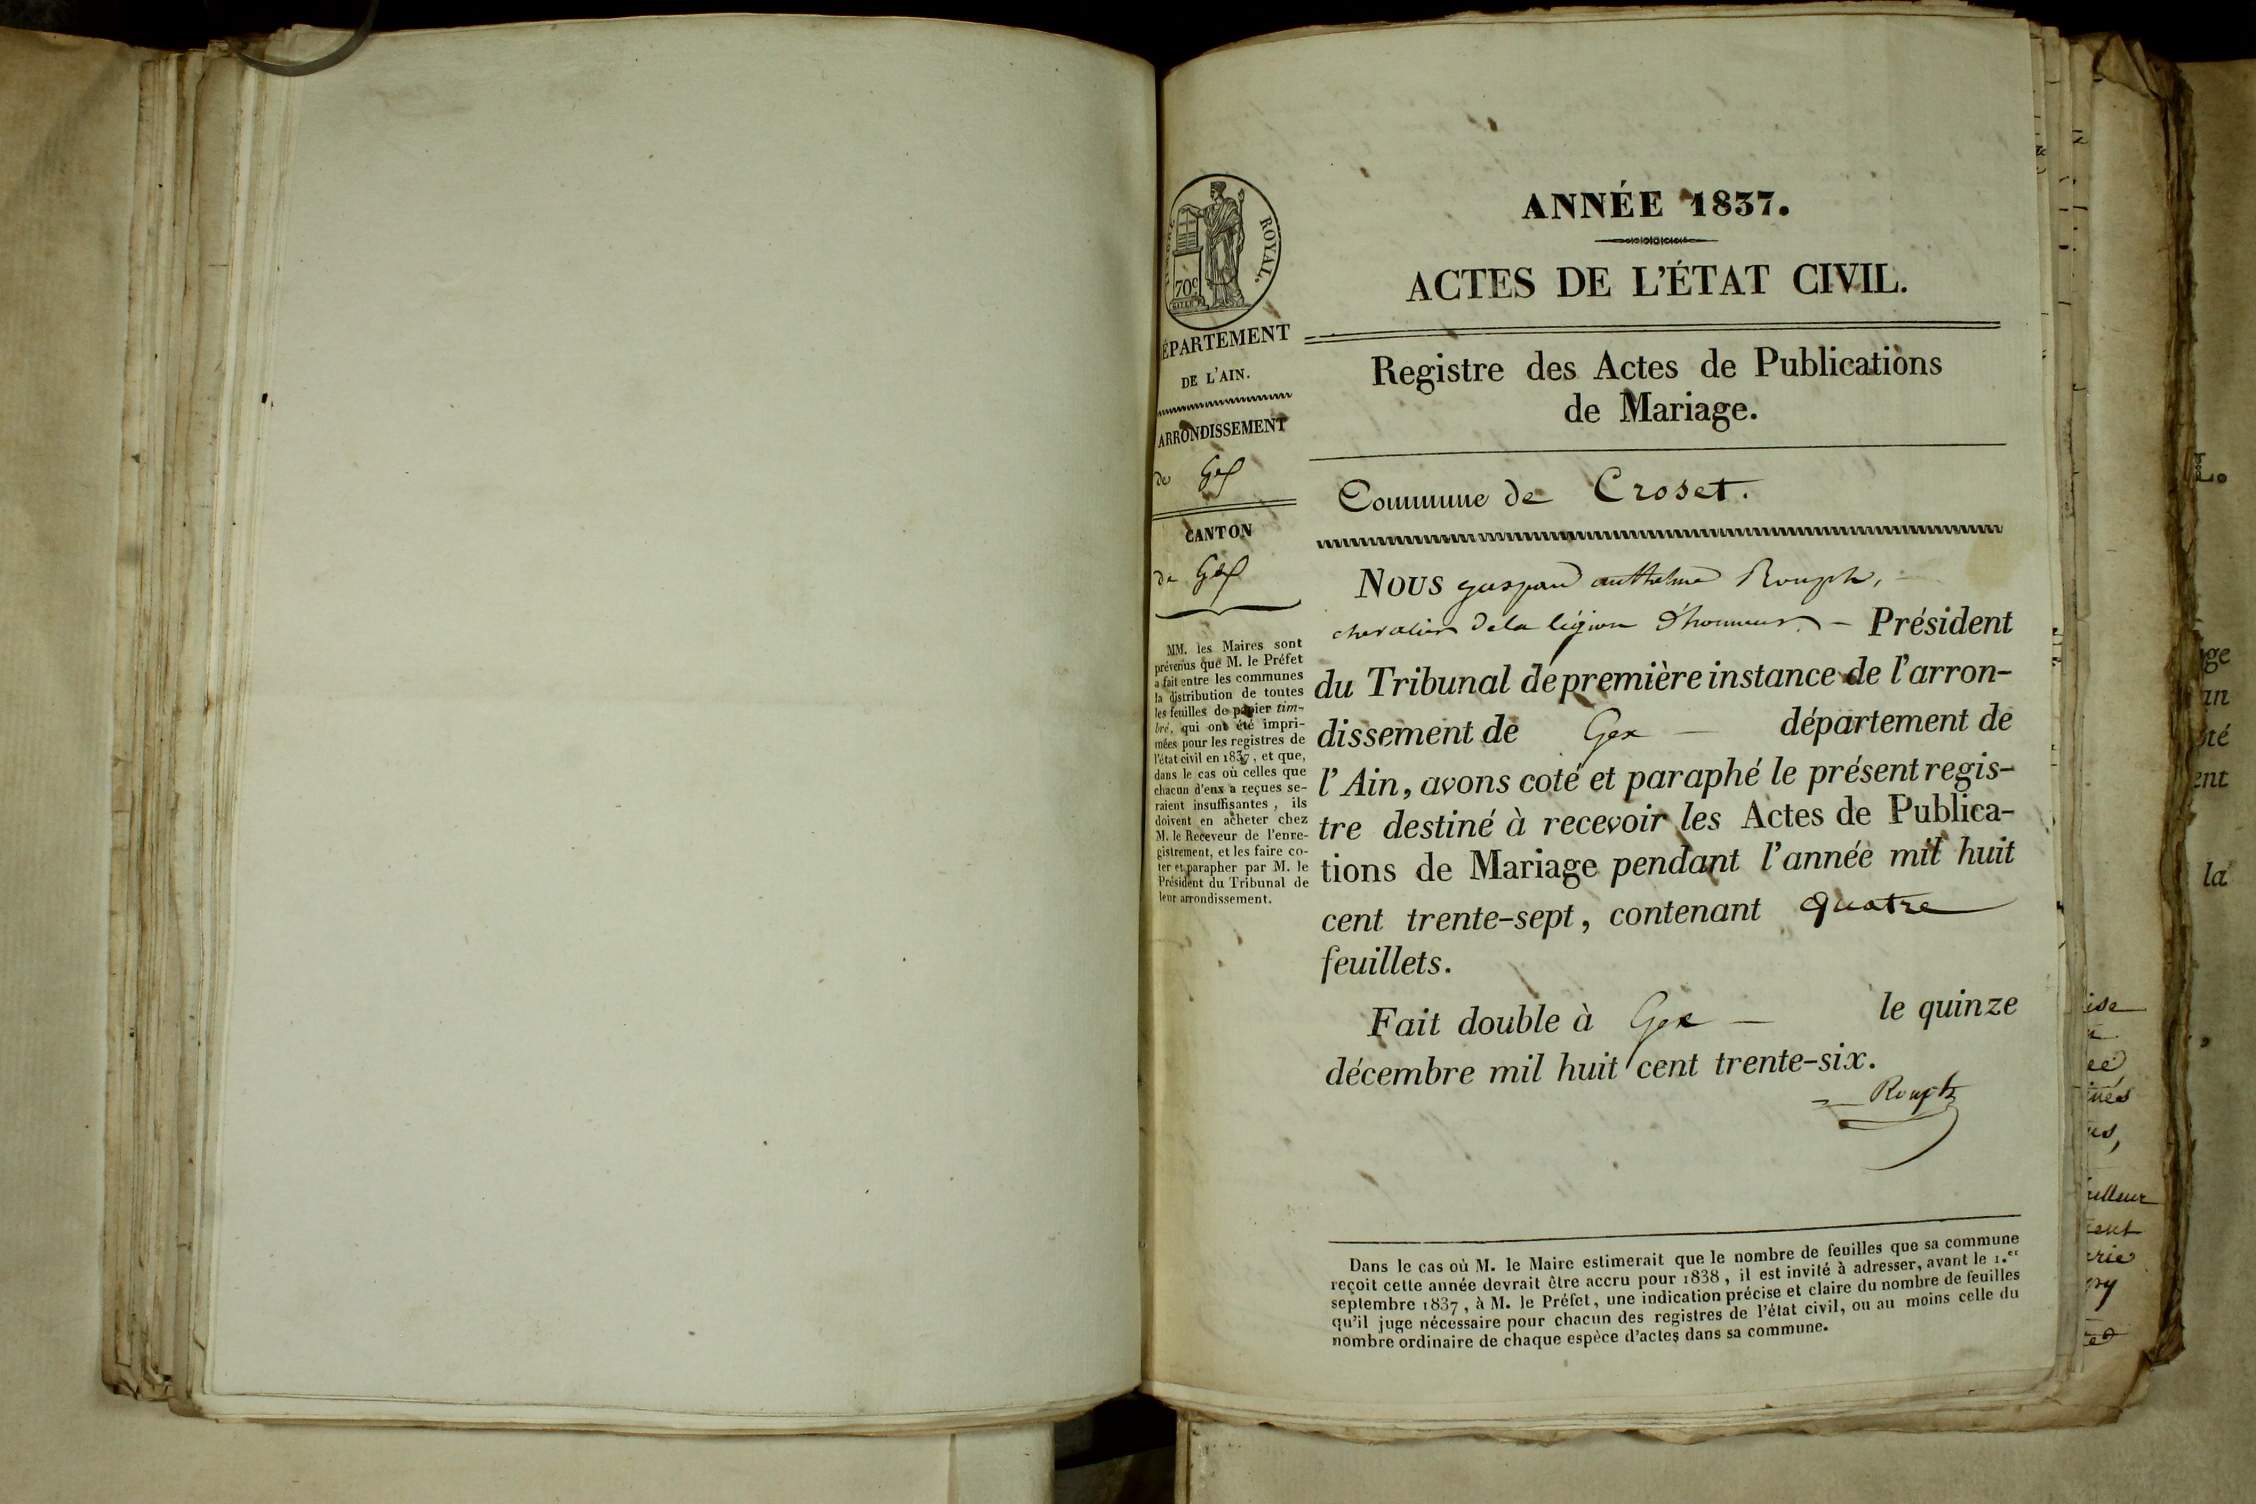 TIMBRE ROYAL.
70c
ÉPARTEMENT
DE L'AIN.
ARRONDISSEMENT
de Gex
CANTON
de Gex
MM. les Maires sont
prévenus que M. le Préfet
a fait entre les communes
la distribution de toutes
les feuilles de papier tim-
bré, qui ont été impri-
mées pour les registres de
l'état civil en 1837, et que,
dans le cas où celles que
chacun d'eux a reçues se-
raient insuffisantes, ils
doivent en acheter chez
M. le Receveur de l'enre-
gistrement, et les faire co-
ter et parapher par M. le
Président du Tribunal de
leur arrondissement.
ANNÉE 1837.
ACTES DE L'ÉTAT CIVIL.
Registre des Actes de Publications
de Mariage.
Commune de Croset.
NOUS gaspard anthelme Rouph,
chevalier de la légion d'honneur. – Président
du Tribunal de première instance de l'arron-
dissement de Gex – département de
l'Ain, avons coté et paraphé le présent regis-
tre destiné à recevoir les Actes de Publica-
tions de Mariage pendant l'année mil huit
cent trente-sept, contenant quatre
feuillets.
Fait double à Gex – le quinze
décembre mil huit cent trente-six.
Rouph
Dans le cas où M. le Maire estimerait que le nombre de feuilles que sa commune
reçoit cette année devrait être accru pour 1838, il est invité à adresser, avant le 1.er
septembre 1837, à M. le Préfet, une indication précise et claire du nombre de feuilles
qu'il juge nécessaire pour chacun des registres de l'état civil, ou au moins celle du
nombre ordinaire de chaque espèce d'actes dans sa commune.